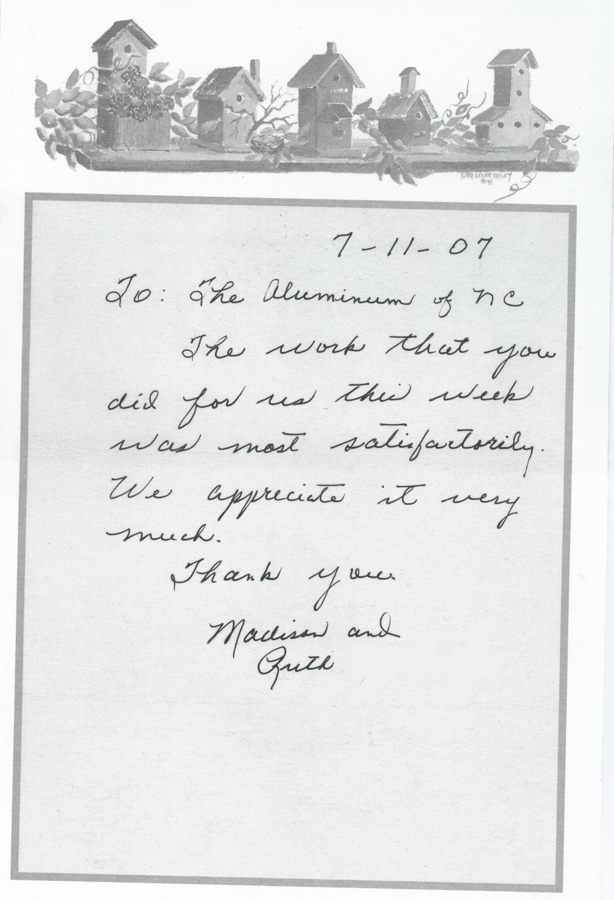 7-11-07
To: The Aluminum of NC
The work that you
did for us this week
was most satisfactorily.
We appreciate it very
much.
Thank you.
Madison and
Ruth